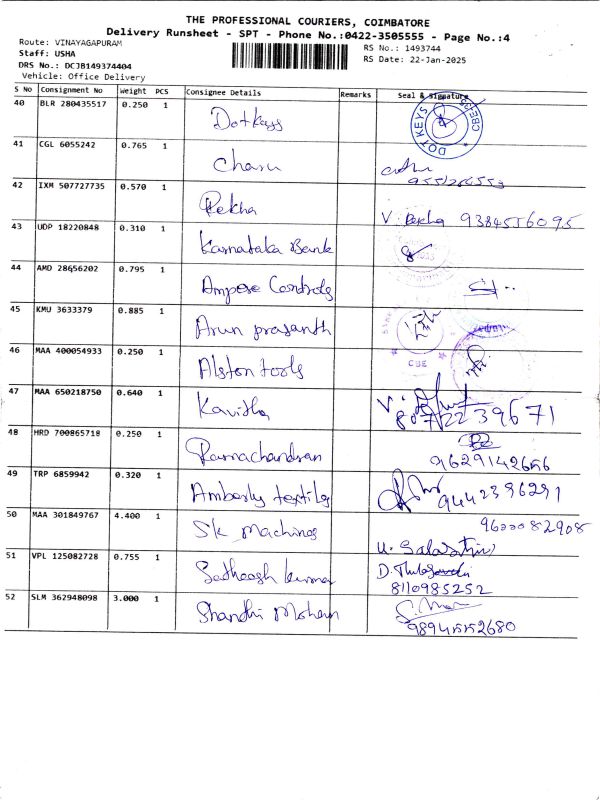 THE PROFESSIONAL COURIERS, COIMBATORE
Delivery Runsheet - SPT - Phone No.:0422-3505555 - Page No.:4
Route: VINAYAGAPURAM
Staff: USHA
DRS No.: DCJB149374404
Vehicle: Office Delivery
RS No.: 1493744
RS Date: 22-Jan-2025
S No Consignment No Weight PCS Consignee Details Remarks Seal & Signature
40 BLR 280435517 0.250 1 Dotkeys DOT KEYS CBE
41 CGL 6055242 0.765 1 Charu
42 IXM 507727735 0.570 1 Rekha V. Rekha 9384556095
43 UDP 18220848 0.310 1 Karnataka Bank
44 AMD 28656202 0.795 1 Ampere Controls
45 KMU 3633379 0.885 1 Arun prasanth CBE
46 MAA 400054933 0.250 1 Alston tools
47 MAA 650218750 0.640 1 Kavitha 8072239671
48 HRD 700865718 0.250 1 Ramachandran 9629142656
49 TRP 6859942 0.320 1 Amberly textiles 9442396291
50 MAA 301849767 4.400 1 SK Machines
51 VPL 125082728 0.755 1 Satheesh kumar 8110985252
52 SLM 362948098 3.000 1 Shandhi Mohan